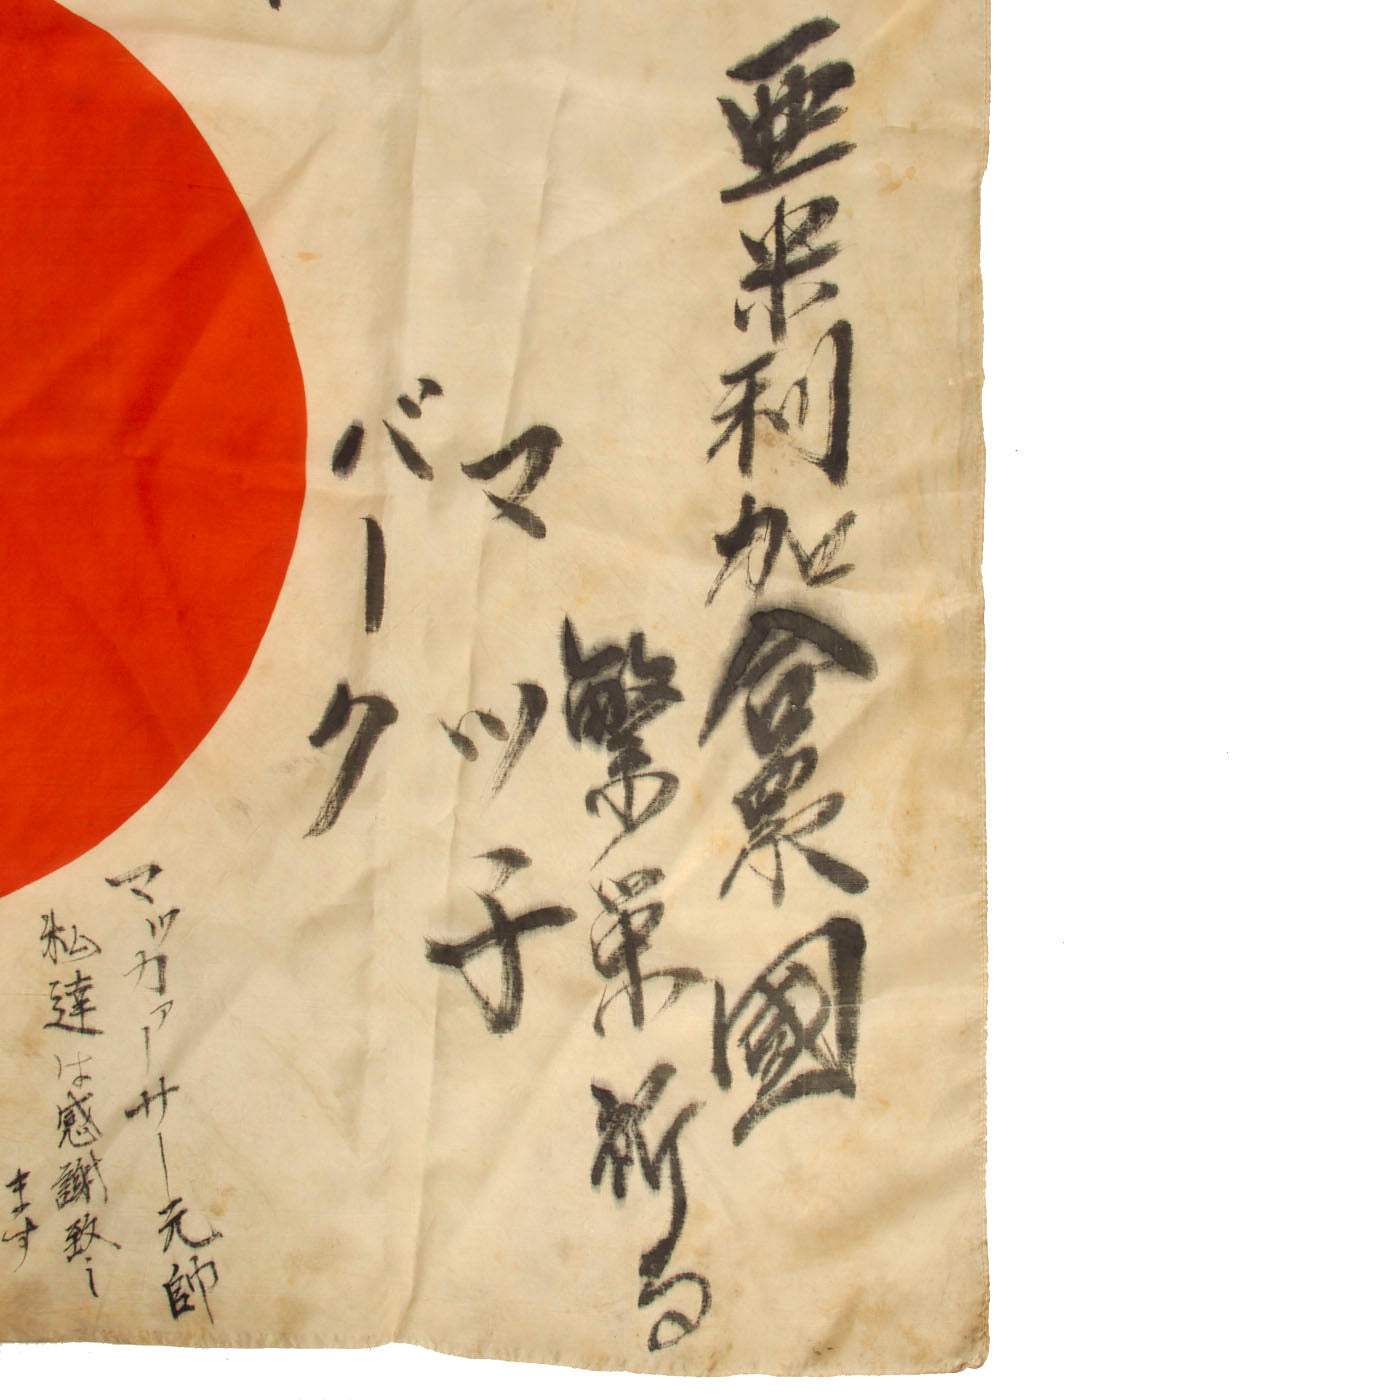 亜米利加合衆國
繁栄祈る
マッ子
バーク
マッカァーサー元帥
私達は感謝致し
ます